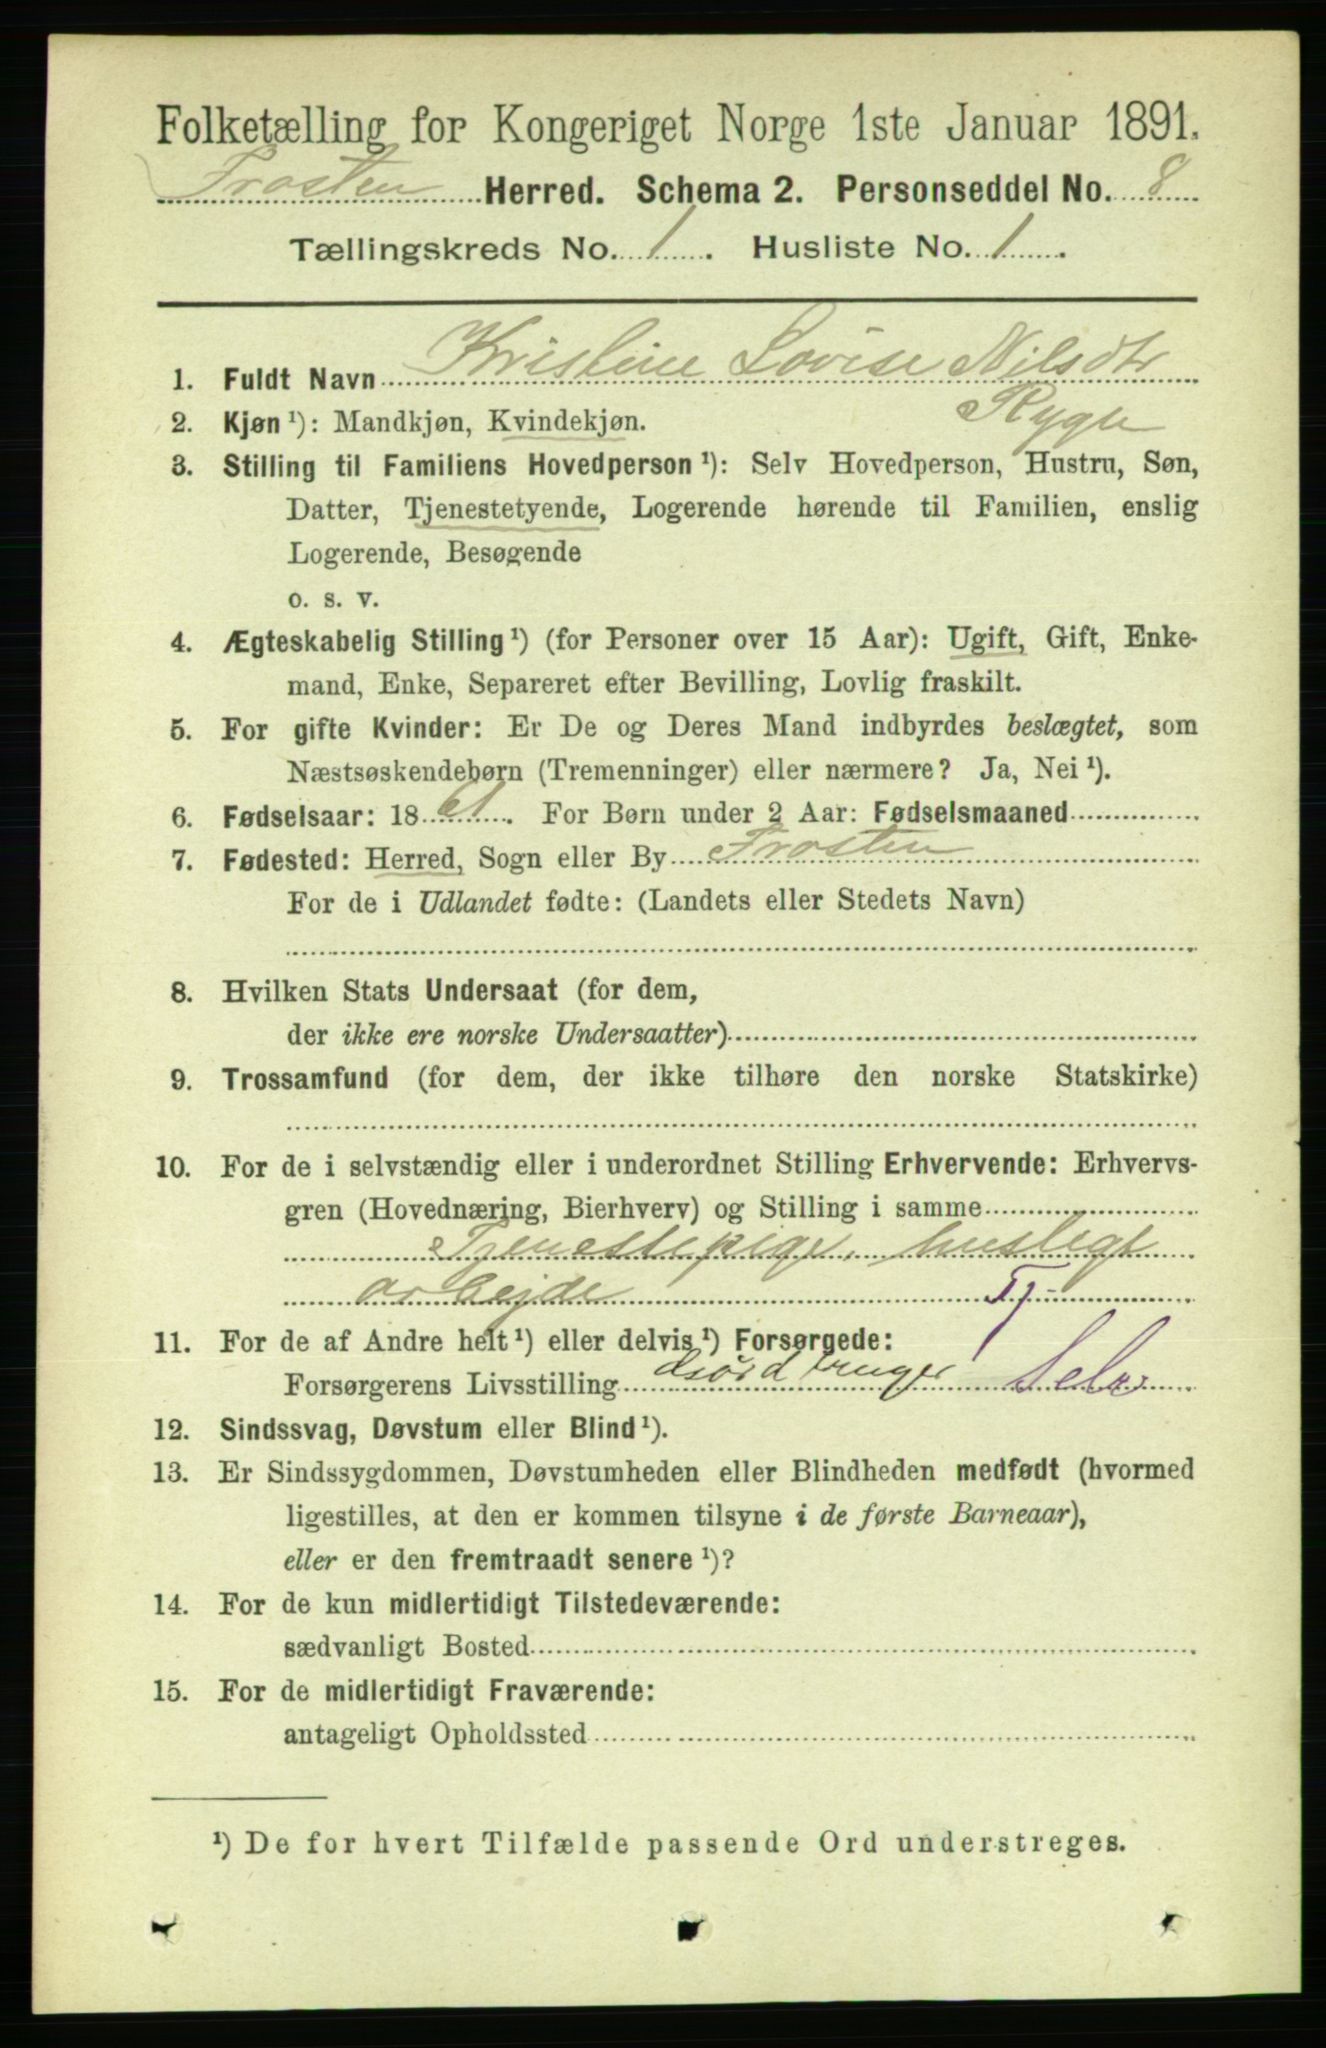 Folketælling for Kongeriget Norge 1ste Januar 1891.
Frosten Herred. Schema 2. Personseddel No. 8
Tællingskreds No. 1. Husliste No. 1.
1. Fuldt Navn Kristine Lovise Nilsdtr
2. Kjøn ¹): Mandkjøn, Kvindekjøn. Rygh
3. Stilling til Familiens Hovedperson ¹): Selv Hovedperson, Hustru, Søn,
Datter, Tjenestetyende, Logerende hørende til Familien, enslig
Logerende, Besøgende
o. s. v.
4. Ægteskabelig Stilling ¹) (for Personer over 15 Aar): Ugift, Gift, Enke-
mand, Enke, Separeret efter Bevilling, Lovlig fraskilt.
5. For gifte Kvinder: Er De og Deres Mand indbyrdes beslægtet, som
Næstsøskendebørn (Tremenninger) eller nærmere? Ja, Nei ¹).
6. Fødselsaar: 1861. For Børn under 2 Aar: Fødselsmaaned
7. Fødested: Herred, Sogn eller By Frosten
For de i Udlandet fødte: (Landets eller Stedets Navn)
8. Hvilken Stats Undersaat (for dem,
der ikke ere norske Undersaatter)
9. Trossamfund (for dem, der ikke tilhøre den norske Statskirke)
10. For de i selvstændig eller i underordnet Stilling Erhvervende: Erhvervs-
gren (Hovednæring, Bierhverv) og Stilling i samme
Tjenestepige, husligt
arbejde Tj.
11. For de af Andre helt ¹) eller delvis ¹) Forsørgede:
Forsørgerens Livsstilling Selv
12. Sindssvag, Døvstum eller Blind ¹).
13. Er Sindssygdommen, Døvstumheden eller Blindheden medfødt (hvormed
ligestilles, at den er kommen tilsyne i de første Barneaar),
eller er den fremtraadt senere ¹)?
14. For de kun midlertidigt Tilstedeværende:
sædvanligt Bosted
15. For de midlertidigt Fraværende:
antageligt Opholdssted
¹) De for hvert Tilfælde passende Ord understreges.